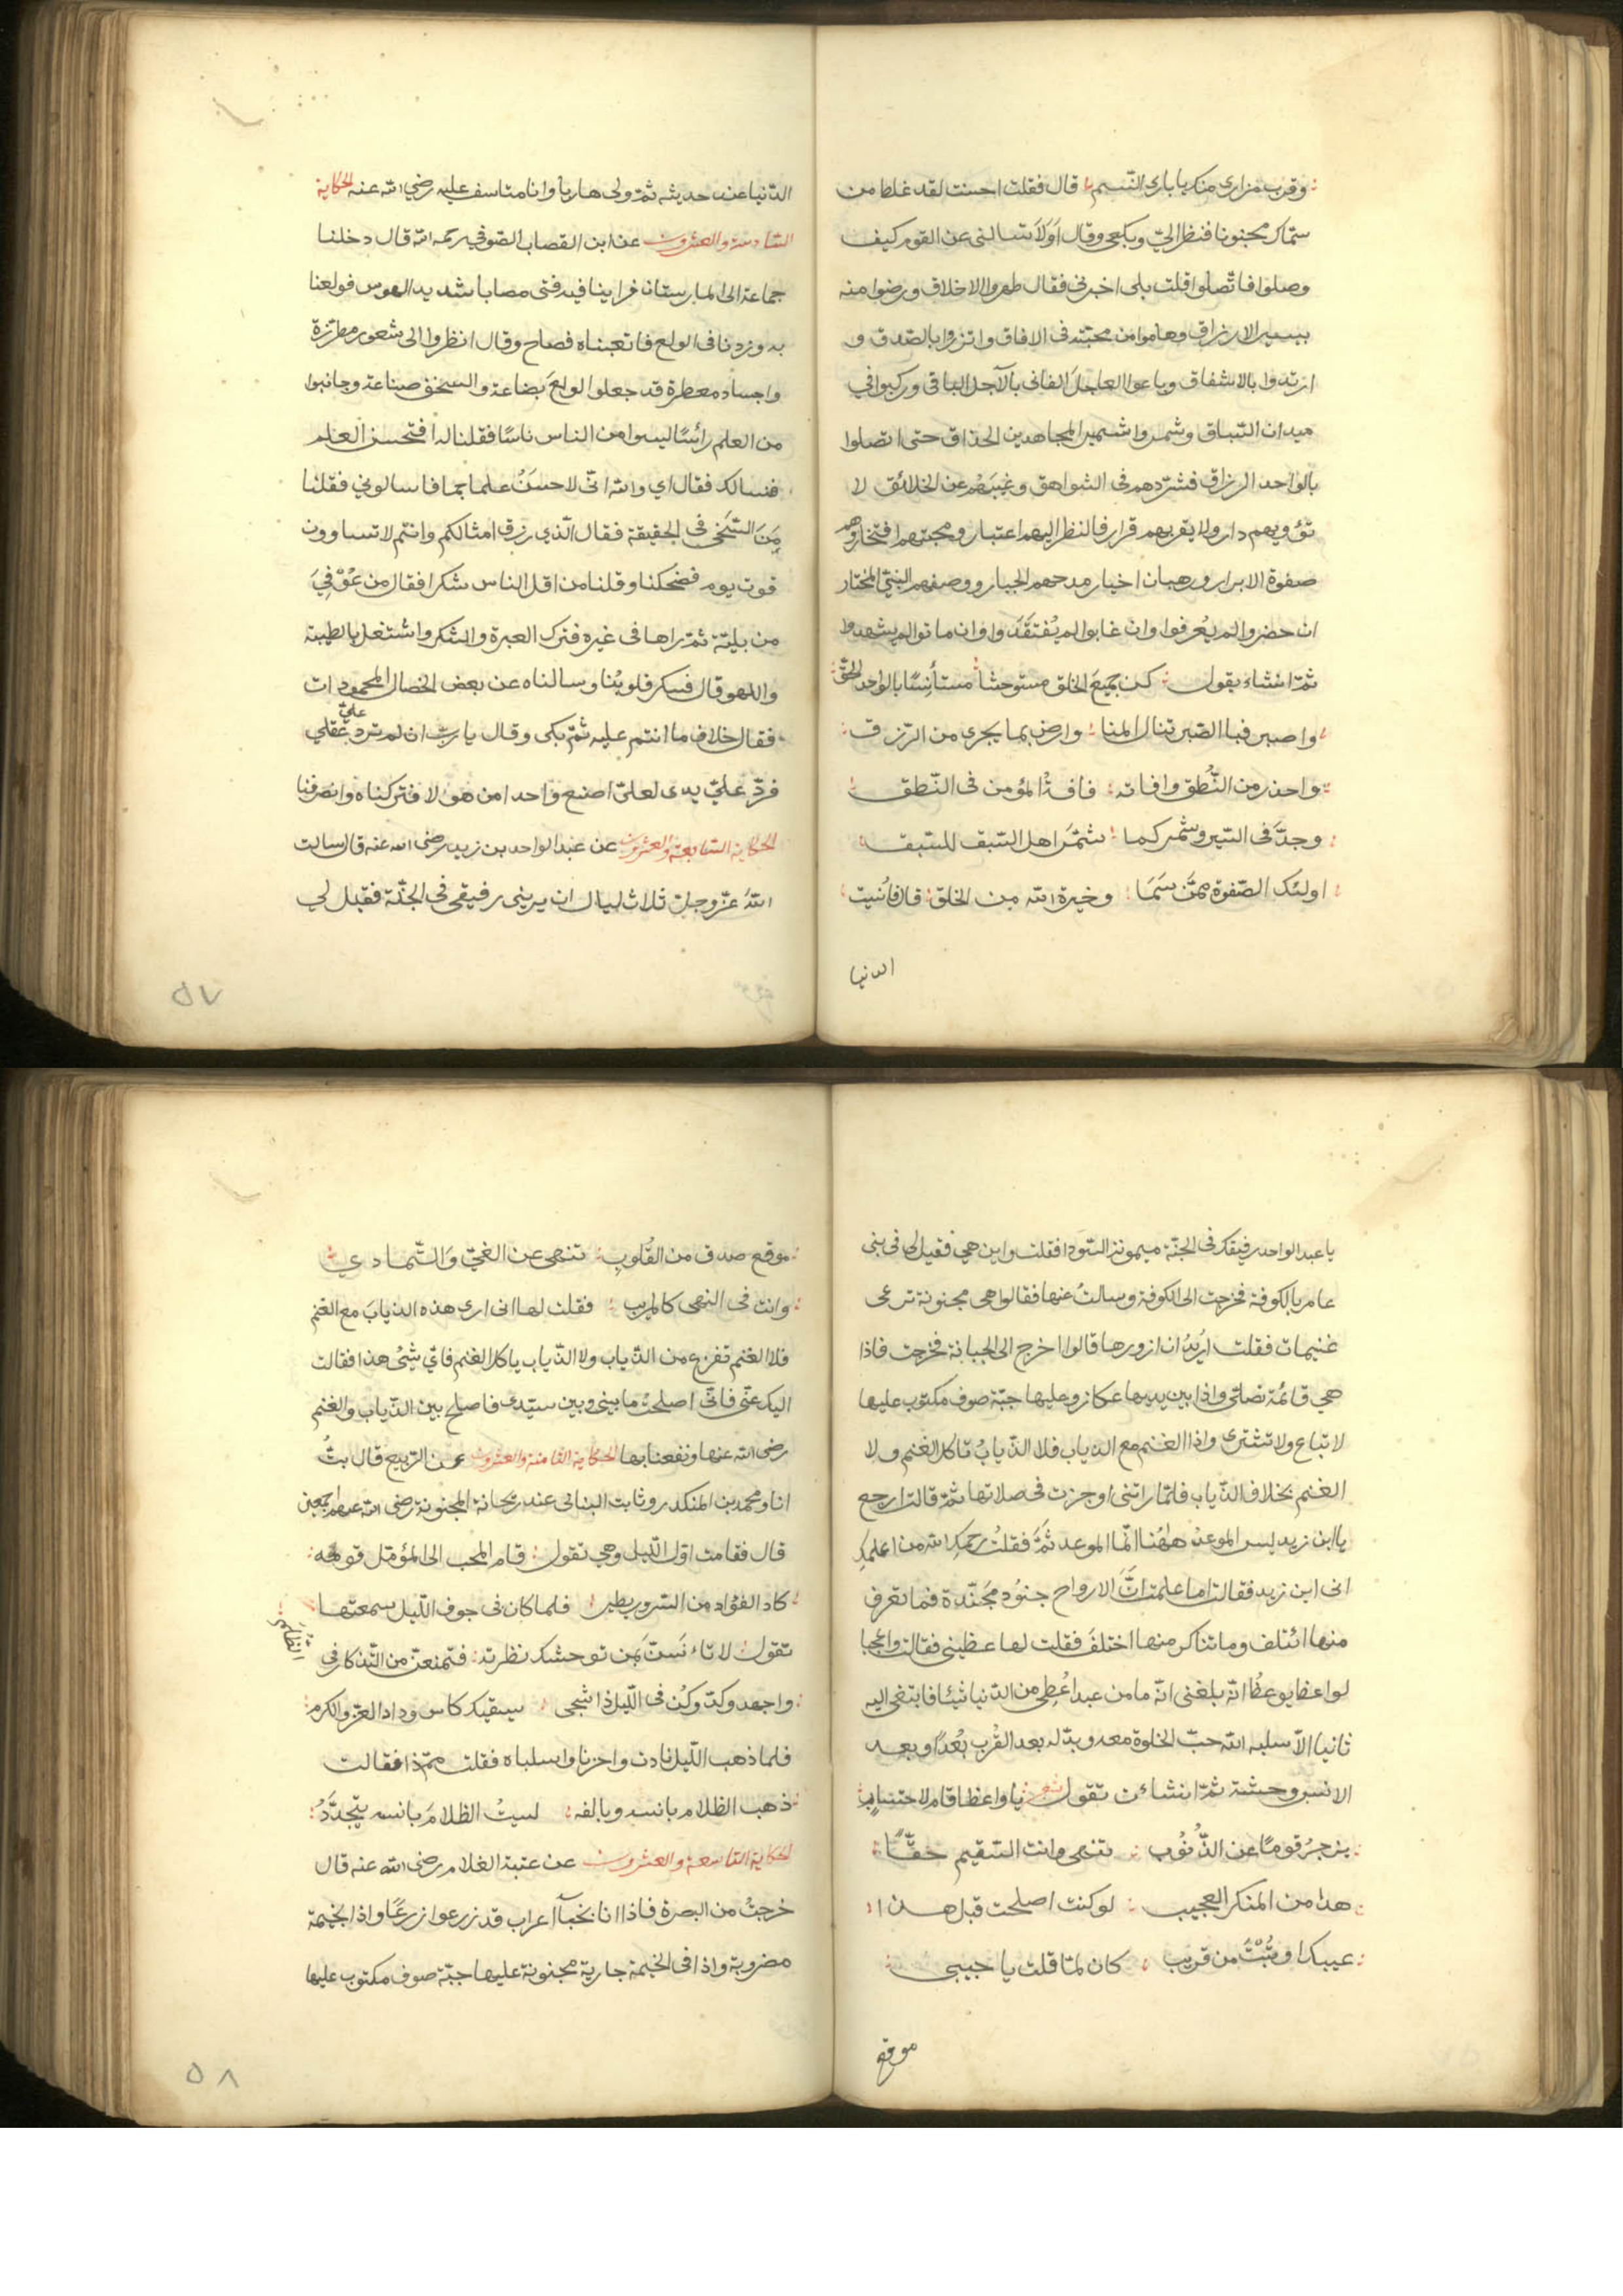 وقرب مزاری منک یا باری النسم قال فقلت احسنت لقد غلط من
سماک مجنونا فنظر الیّ وبکی وقال اَوَلاَ تسالنی عن القوم کیف
وصلوا فاتصلوا قلت بلی اخبرنی فقال طهروا الاخلاق ورضوا منه
بیسیر الارزاق وهاموا من محبته فی الافاق واتزروا بالصدق و
ارتدوا بالاشفاق وباعوا العاجلَ الفانی بالآجل الباقی ورکبوا فی
میدان السباق وشمروا تشمیر المجاهدین الحذاق حتی اتصلوا
بالواحد الرزاق فشردهم فی الشواهق وغیبهم عن الخلائق لا
تؤویهم دار ولا یقربهم قرار فالنظر الیهم اعتبار ومحبتهم افتخار وهم
صفوة الابرار ورهبان اخیار مدحهم الجبار ووصفهم النبیّ المختار
ان حضروا لم یُعرفوا وان غابوا لم یُفتَقَدَوا وان ماتوا لم یشهدوا
ثمّ انشاء یقول کن من جمیع الخلق مستوحشًا مستأنِسًا بالواحد الحقّ
واصبر فبا الصّبر تنال المنا وارض بما یجری من الرّزق
واحذر من النُّطق وافاته فافة المؤمن فی النّطق
وجدَّ فی السّیر وشمر کما شمَّر اهل السّبق للسّبق
اولئک الصّفوة ممَّن سَمَا وخیرة الله من الخلق قال فاُنسیت
الدنیا
الدّنیا عند حدیثه ثمّ ولی هاربا وانا متاسف علیه رضی الله عنه الحکایة
السّادسة والعشرون عن ابن القصاب الصّوفی رحمه الله قال دخلنا
جماعة الی المارستان فراینا فیه فتی مصابا شدید الهوس فولعنا
به وزدنا فی الولع فاتعبناه فصاح وقال انظروا الی شعور مطرّزة
واجساد معطرة قد جعلوا الولعَ بضاعة والسخف صناعة وجانبوا
من العلم رأسًا لیسوا من الناس ناسًا فقلنا له افتحسن العلم
فنسالک فقال ای والله انّی لاحسنُ علما جما فاسالونی فقلنا
مَنَ السَّخی فی الحقیقة فقال الّذی رزق امثالکم وانتم لا تساوون
قوت یوم فضحکنا وقلنا من اقل الناس شکرا فقال من عُوفِیَ
من بلیّة ثمّ راها فی غیره فترک العبرة والشکر واشتغل بالطیبة
واللهو قال فکسر قلوبُنا وسالناه عن بعض الخصال المحمودات
فقال خلاف ما انتم علیه ثمّ بکی وقال یا ربّ ان لم ترد علیّ عقلی
فردّ علیّ یدی لعلیّ اصفع واحدا من هؤلا فترکناه وانصرفنا
الحکایة السّابعة والعشرون عن عبد الواحد بن زید رضی الله عنه قال سالت
اللهَ عزّ وجلّ ثلاث لیال ان یرینی رفیقی فی الجنّة فقیل لی
٥٧
یا عبد الواحد رفیقک فی الجنّة میمونة السّودا فقلت واین هی فقیل لی فی بنی
عامر بالکوفة فخرجت الی الکوفة وسالتُ عنها فقالوا هی مجنونة ترعی
غنیمات فقلت اریدُ ان ازورها قالوا اخرج الی الجبانة فخرجت فاذا
هی قائمة تصلی واذا بین یدیها عکاز وعلیها جبّة صوف مکتوب علیها
لا تباع ولا تشتری واذا الغنم مع الذیاب فلا الذّیابُ تاکل الغنم ولا
الغنم تخاف الذّیاب فلمّا راتنی اوجزت فی صلاتها ثمّ قالت ارجع
یا ابن زید لیس الموعد هاهُنا انّما الموعد ثَمَّ فقلتُ رحمکِ الله من اعلمکِ
انی ابن زید فقالت اما علمت انَّ الارواح جنود مجنّدة فما تعرف
منها ائتلف وما تناکر منها اختلفَ فقلت لها عظینی فقالت واعجبا
لواعظ یوعظُ انّه بلغنی انّه ما من عبد اُعْطِی من الدّنیا شیئا فابتغی الیه
ثانیا الاّ سلبه اللّه حبّ الخلوة معه وبدّله بعد القُرب بُعْدًا وبعد
الانس وحشة ثمّ انشات تقول شعر یا واعظا قام لاحتساب
یزجرُ قومًا عن الذُّنُوب تنهی وانت السّقیم حقًّا
هذا من المنکر العجیب لو کنت اصلحت قبل هذا
عیبک او تُبْتَ من قریب کان لما قلت یا حبیبی
موقع
موقع صدق من القُلُوبِ تنهی عن الغیّ وَالتّمادی
وانت فی النهی کالمریب فقلت لها انی اری هذه الذیابَ مع الغنم
فلا الغنم تفزع من الذّیاب ولا الذّیاب یاکل الغنم فایّ شیْ هذا فقالت
الیک عنّی فانّی اصلحتُ ما بینی وبین سیّدی فاصلح بین الذّیاب والغنم
رضی الله عنها ونفعنا بها الحکایة الثّامنة والعشرون عن الرّبیع قال بتُّ
انا ومحمد بن المنکدر وثابت البنانی عند ریحانة المجنونة رضی الله عنهم اجمعین
قال فقامت اوّل اللّیل وهی تقول قام المحب الی المؤمّل قومة
کاد الفؤاد من السّرور یطیر فلما کان فی جوف اللّیل سمعتها
تقول لا تاءنَسَنَّ بمَن توحشک نظرته فتمنعنّ من التّذکار فی
الظّلم
واجهد وکدّ وکُن فی اللّیل ذا شجی یسقیک کاس وداد العزّ والکرم
فلما ذهب اللّیل نادت واحزنا واسلباه فقلت ممّ ذا فقالت
ذهب الظلام بانسه وبالفه لیتُ الظلامَ بانسه یتجدَّدُ
الحکایة التّاسعة والعشرون عن عتبة الغلام رضی الله عنه قال
خرجتُ من البصرة فاذا انا بخبآ اعراب قد زرعوا زرعًا واذا بخیمة
مضروبة واذا فی الخیمة جاریة مجنونة علیها جبّة صوف مکتوب علیها
٥٨